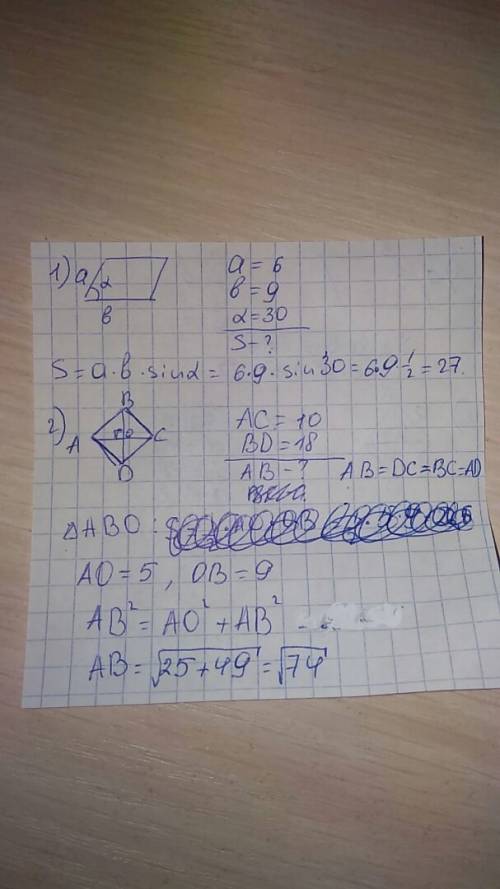 1) a α
в
a = 6
в = 9
α = 30
S - ?
S = a · в · sin α = 6 · 9 · sin 30 = 6 · 9 · 1/2 = 27.
2) A B C D O
AC = 10
BD = 18
AB - ? AB = DC = BC = AD
△ABO :
AO = 5 , OB = 9
AB² = AO² + AB²
AB = √25 + 49 = √74